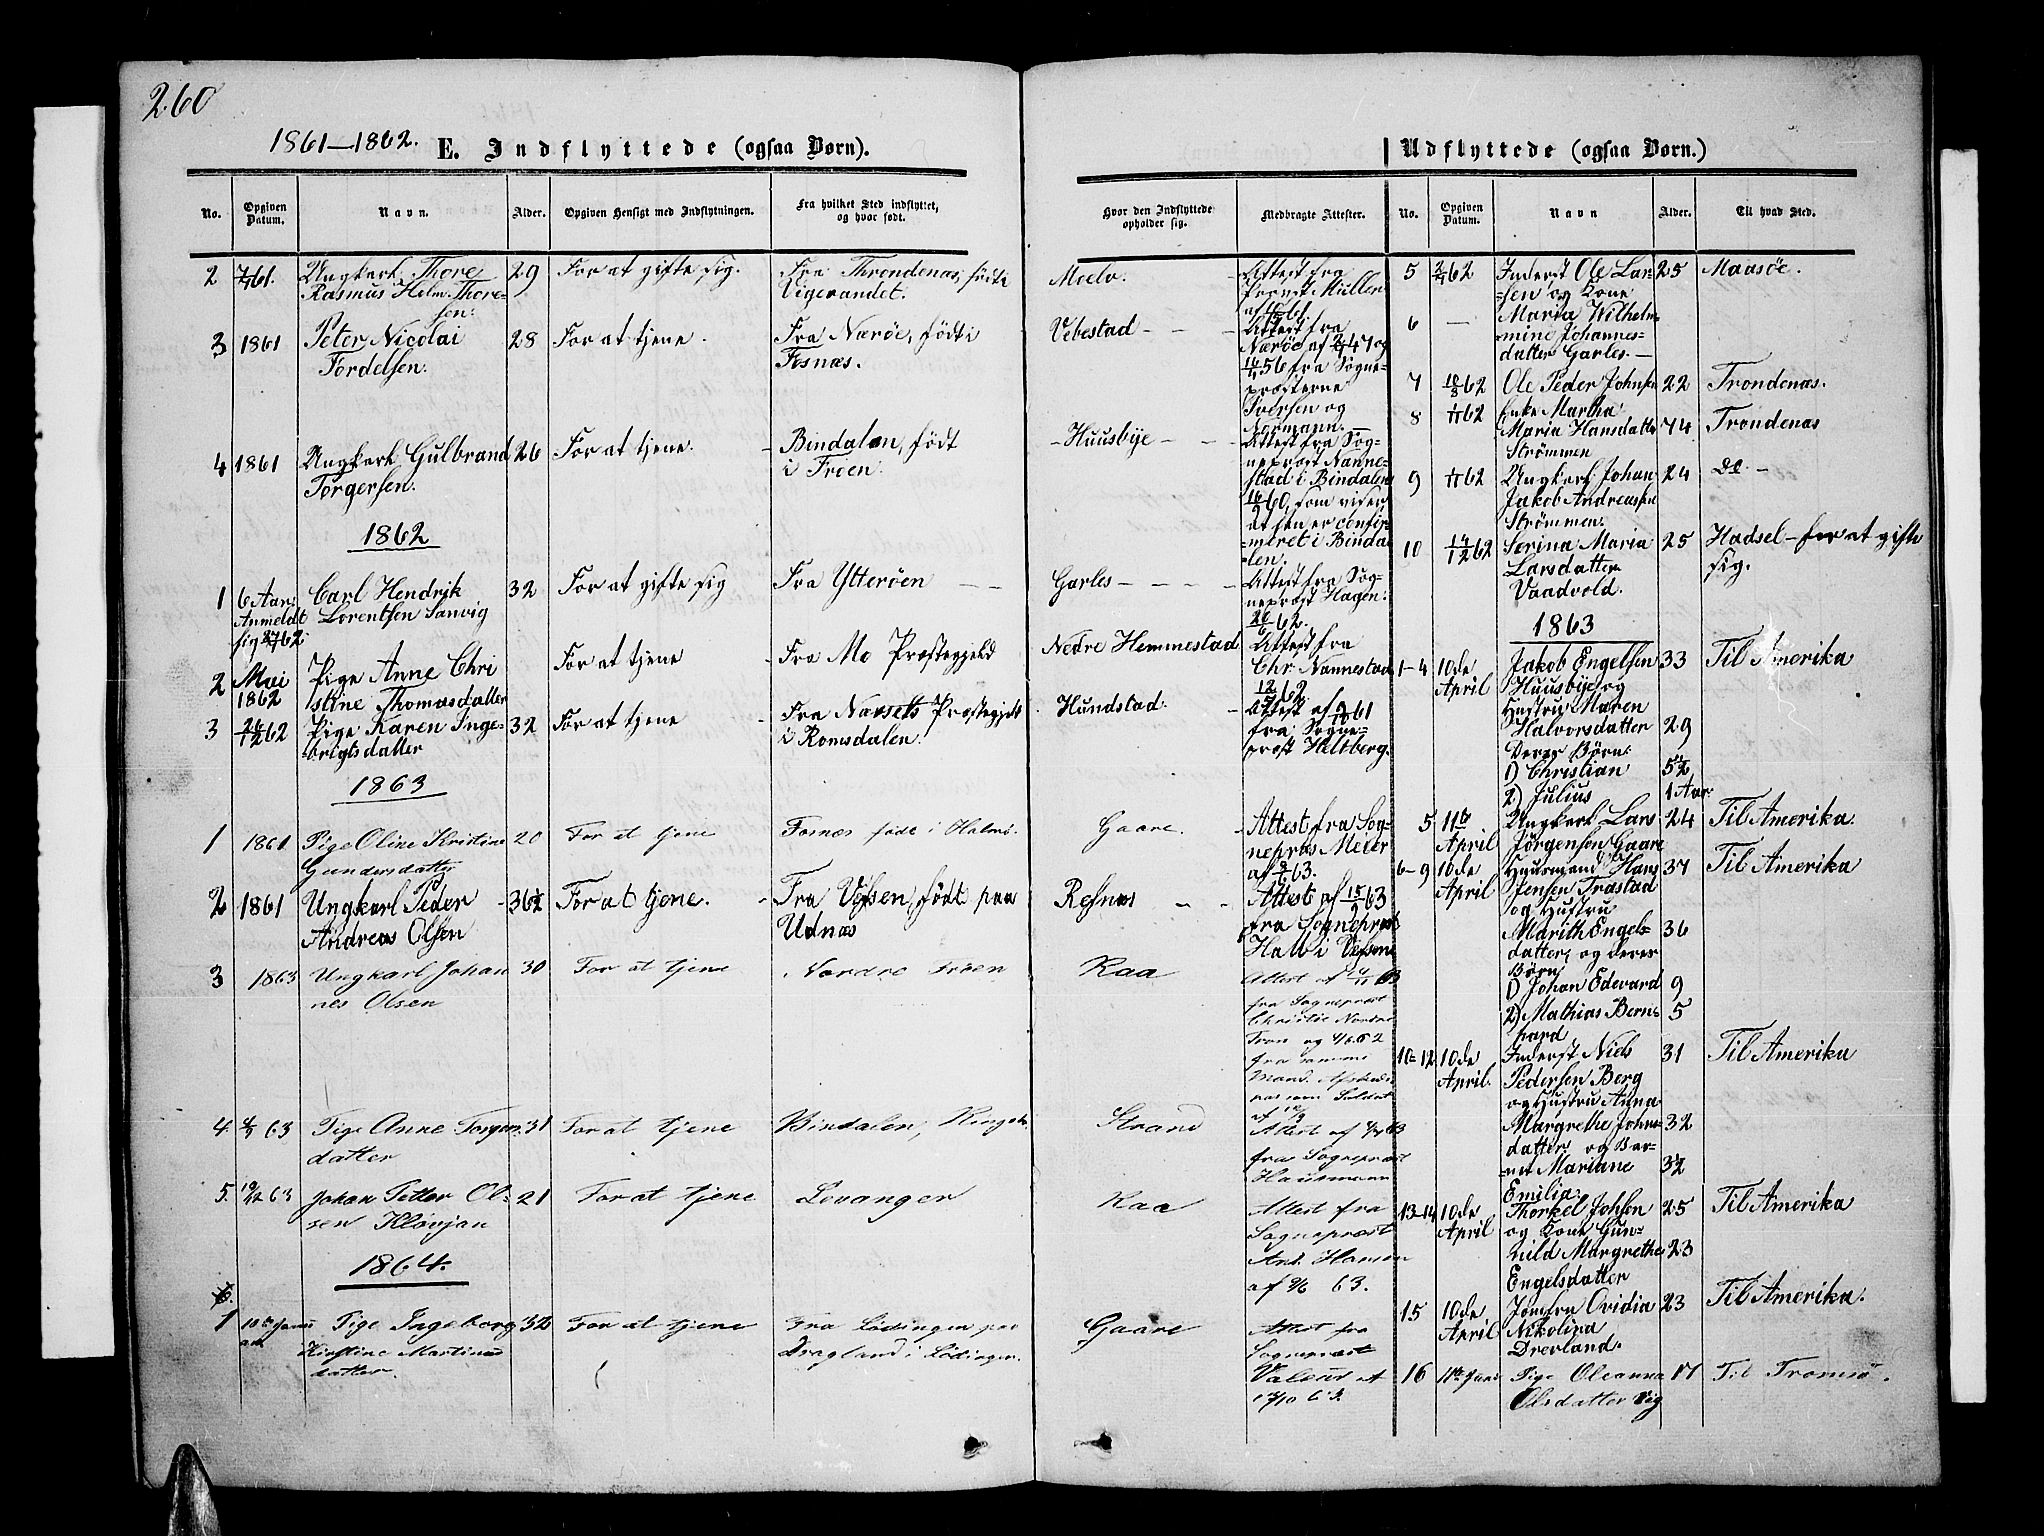 260
1861–1862.
E. Indflyttede (ogsaa Børn).
No.
Opgiven Datum.
Navn.
Alder.
Opgiven Hensigt med Indflytningen.
Fra hvilket Sted indflyttet, og hvor født.
2 7/61. Ungkarl Thore 29 For at gifte sig. Fra Throndenæs, født i
Rasmus Helm. Thore- Vigevandet.
sen.
3 1861 Peter Nicolai 28 For at tjene. Fra Nærøe, født i
Fordelsen. Fosnæs.
4 1861 Ungkarl Gulbrand 26 For at tjene. Bindalen, født
Torgersen. i Froen.
1862
1 6 Aar. Carl Hendrik 32 For at gifte sig Fra Ytterøen
Anmeldt Lorentsen Sanvig
sig 62.
2 Mai Pige Anne Chri For at tjene Fra Mo Præstegjeld
1862 stine Thomasdatter
3 24/12 62 Pige Karen Inge- 32 For at tjene Fra Næsets Præstegjeld
brigtsdatter i Romsdalen.
1863
1 1861 Pige Oline Kristine 20 For at tjene Fosnæs født i Halmø.
Gundersdatter
2 1861 Ungkarl Peder 36½ For at tjene. Fra Vefsen, født paa
Andreas Olsen Udnæs
3 1863 Ungkarl Johan 30 For at tjene Nordre Frøen
nes Olsen
4. 63 Pige Anne Torgers 31 For at tjene Bindalen,
datter
5. 63 Johan Petter Ol- 21 For at tjene Levanger
sen Kløvjan
1864.
1 Pige Ingeborg 32 For at tjene Fra Lødingen paa
Kirstine Martinus Dragland i Lødingen.
datter.
Hvor den Indflyttede opholder sig.
Medbragte Attester.
Moelv. Attest fra
Provst Müller
Vebestad Attest fra
Nærøe af 47 og
56 fra Sogne-
præsterne
Iversen og
Normann.
Huusbye Attest fra Sog-
nepræst Nanne-
stad i Bindalen
60, som viser,
at han er confir-
meret i Binda-
len.
Garles Attest fra Sog-
nepræst Hagen.
62.
Nedre Hemmestad Attest fra
Chr. Nannestad
12/7 62.
Hundstad. Attest af 61
fra Sogne-
præst Heltberg.
Gaare. Attest fra Sog-
nepræs Meier
af 63.
Refsnes Attest af 15/2 63
fra Sognepræst
Halb i Vefsen
Kaa Attest af 63
fra Sognepræst
Christie Nordre
Frøn og 4/6 62
fra samme
Mand. Afskeds
pas som Soldat
af
Strand Attest af 63
fra Sognepræst
Hausmann
Kaa Attest fra
Sognepræst
Ant. Hansen
af 9/6 63.
Gaare Attest fra
Sognepræst
Valeur af
17/10 63.
Udflyttede (ogsaa Børn.)
No.
Opgiven Datum.
Navn
Alder.
Til hvad Sted.
5 62 Inderst Ole Lar- 25 Maasøe.
sen og Kone
6 — Maria Wilhelm
mine Johannes-
datter Garles. —
7 10/8 62 Ole Peder Johnsen 22 Trondenæs.
8 62 Enke Martha
Maria Hansdatter 74 Trondenæs
Strømmen
9 62 Ungkarl Johan 24 do. —
Jakob Andreassen
Strømmen.
10 62 Serina Maria 25 Hadsel – for at gifte
Larsdatter sig.
Vaadvold.
1863
1–4 10de Jakob Engelsen 33 Til Amerika
April Huusbye og
Hustru Maren
Halvorsdatter 29
Deres Børn:
1) Christian 5½
2) Julius 1 Aar.
5 11te Ungkarl Lars 24 Til Amerika.
April Jørgensen Gaare
6–9 10de Huusmand Hans 37 Til Amerika
April Jensen Trastad
og Hustru
Marith Engels- 36
datter, og deres
Børn
1) Johan Edevard 9
2) Mathias Bern- 5
hard
10–12 10de Inderst Niels 31 Til Amerika
April. Pedersen Berg
og Hustru Anna
Margrethe Johns- 32
datter og Bar-
net Mariane 3½
Emilia.
13–14 10de Thorkel Johsen 25 Til Amerika
April og Kone Gun-
hild Margrethe 23
Engelsdatter
15 10de Jomfru Ovidia 23 Til Amerika.
April Nikolina
Drevland.
16 11te Juni Pige Oleanna 17 Til Tromsø.
Olsdatter Vig